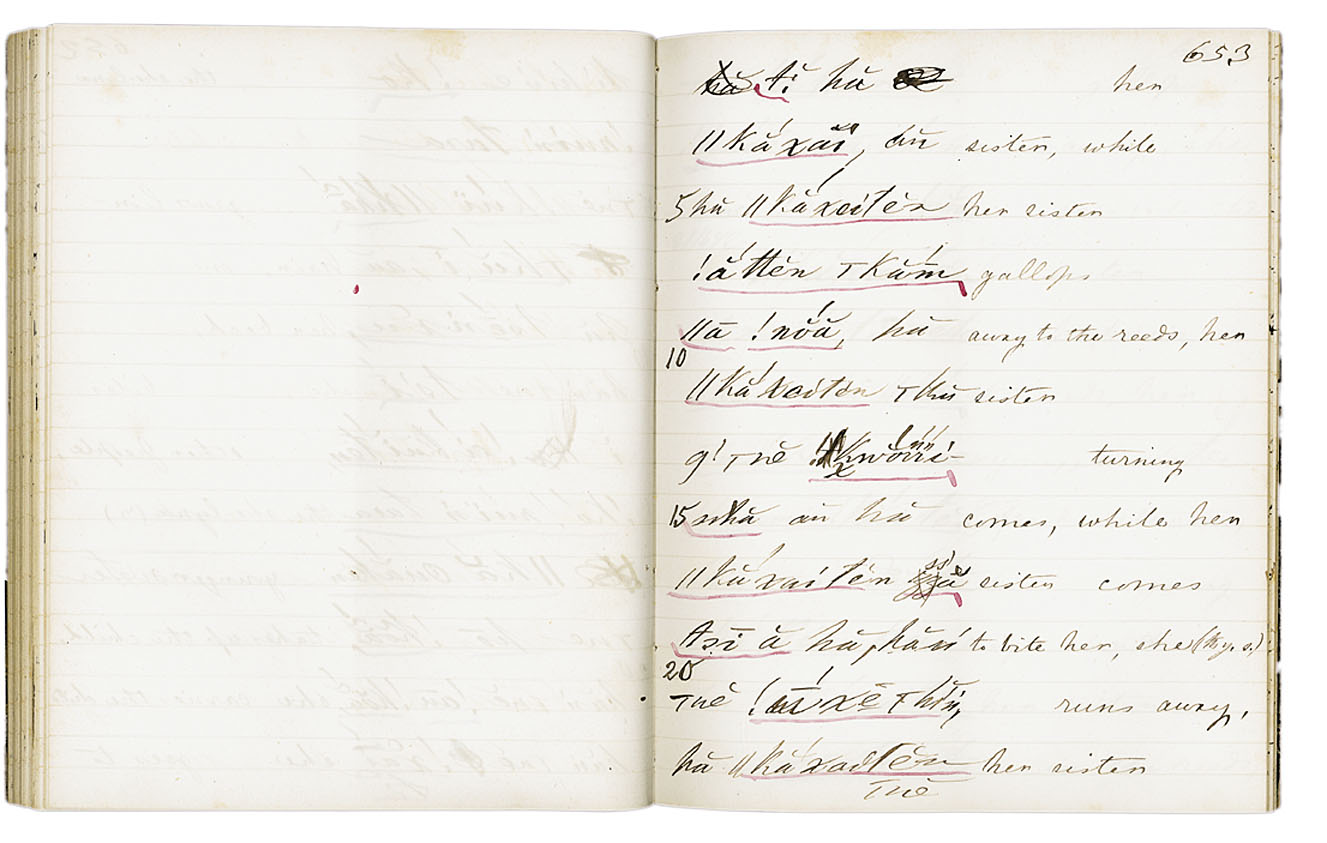 653
tĭ hă her
ǁkắxāĭ, āŭ sister, while
5 hă ǁkắxaitĕn her sister
ǃắttĕn ⊤kắm gallops
ǁā ǃnŏắ, hă away to the reeds, her
10
ǁkắxaitĕn ⊤hă sister
gǃ ⊤nĕ turning
15 sshā āŭ hă comes, while her
ǁkắxaitĕn ssā sister comes
tsī ā hă, hāń to bite her, she (the y. s.)
20
⊤nĕ runs away,
hă ǁkắxaitĕn her sister
⊤nĕ